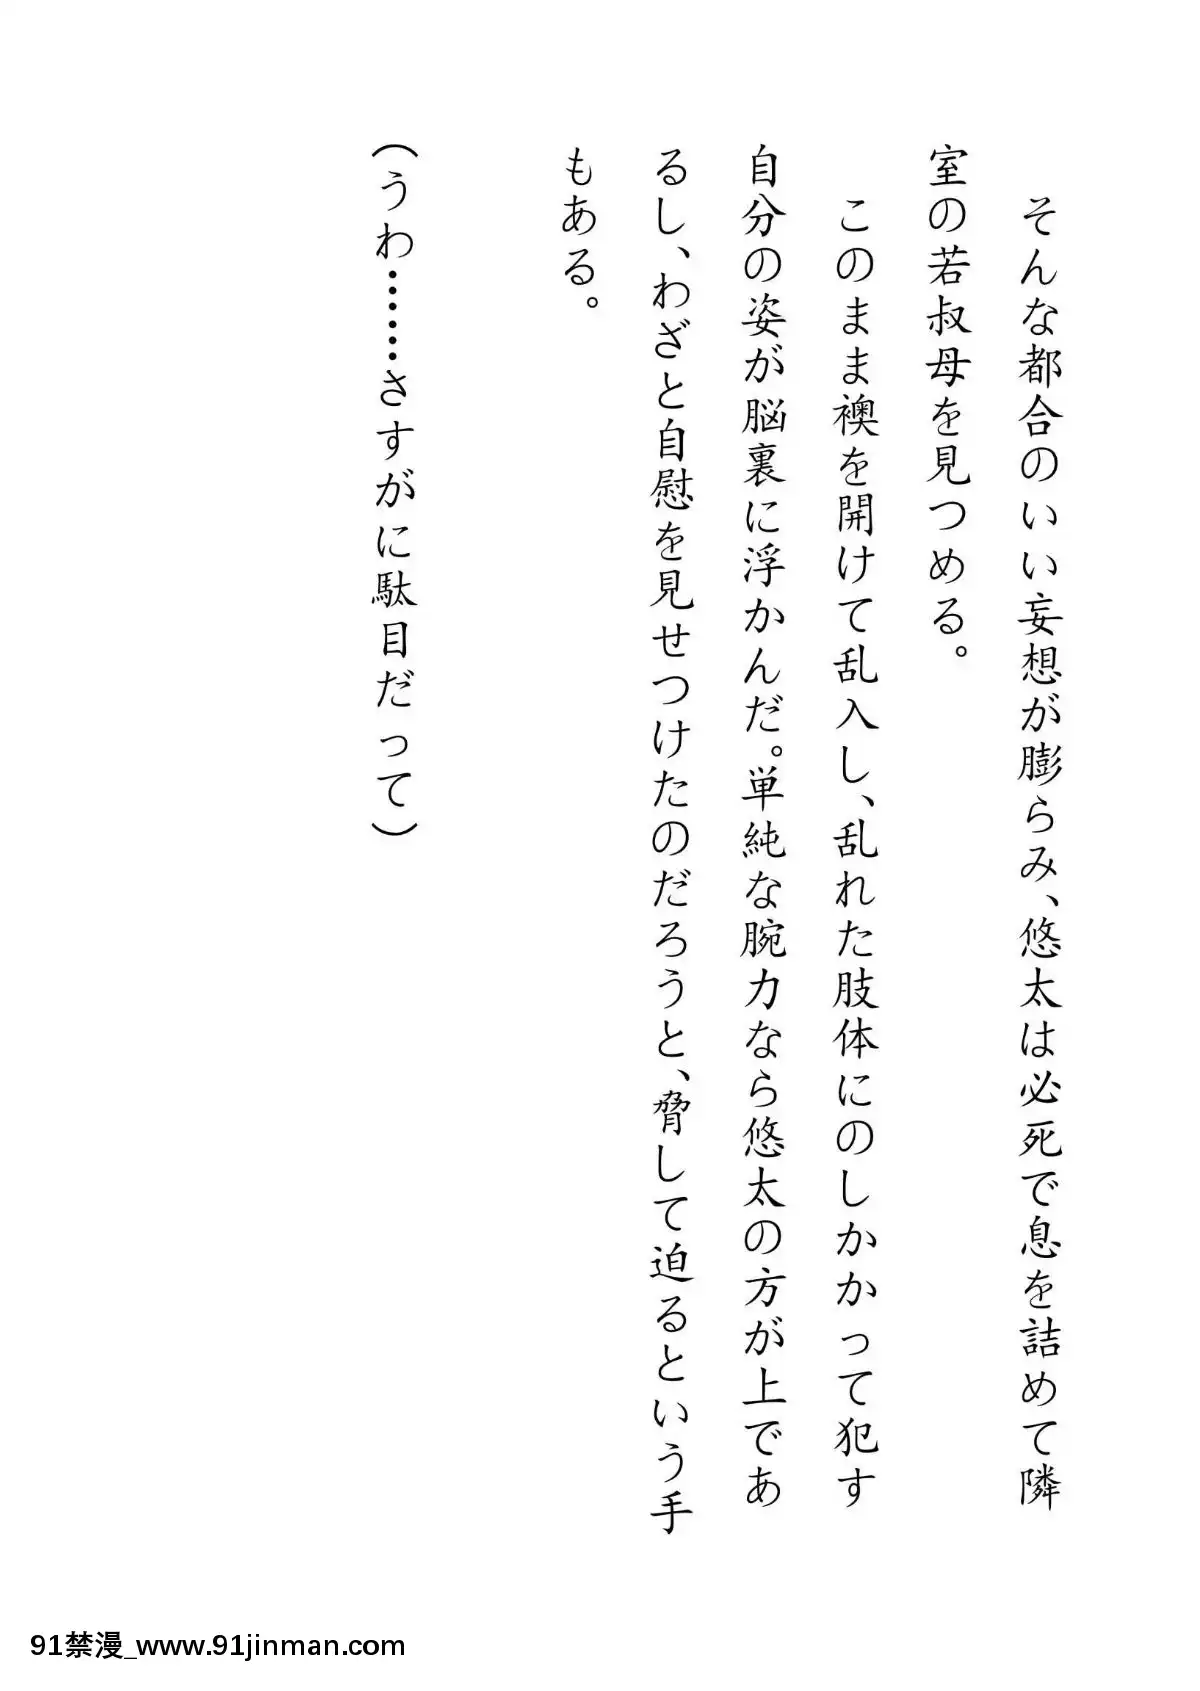 そんな都合のいい妄想が膨らみ、悠太は必死で息を詰めて隣
室の若叔母を見つめる。
このまま襖を開けて乱入し、乱れた肢体にのしかかって犯す
自分の姿が脳裏に浮かんだ。単純な腕力なら悠太の方が上であ
るし、わざと自慰を見せつけたのだろうと、脅して迫るという手
もある。
（うわ……さすがに駄目だって）
91禁漫_www.91jinman.com